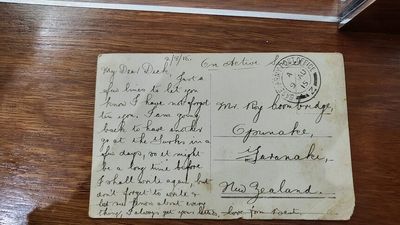 2/8/15.
My Dear Dick, Just a
few lines to let you
know I have not forgot
ten you. I am going
back to have another
go at the Turks in a
few days, so it might
be a long time before
I shall write again, but
don't forget to write &
let me know about every
thing, I always get your letters, love from
On Active
BASE ARMY POST OFFICE
A
9 AU
15
Z
Mr. Roy
Opunake,
Taranaki,
New Zealand.